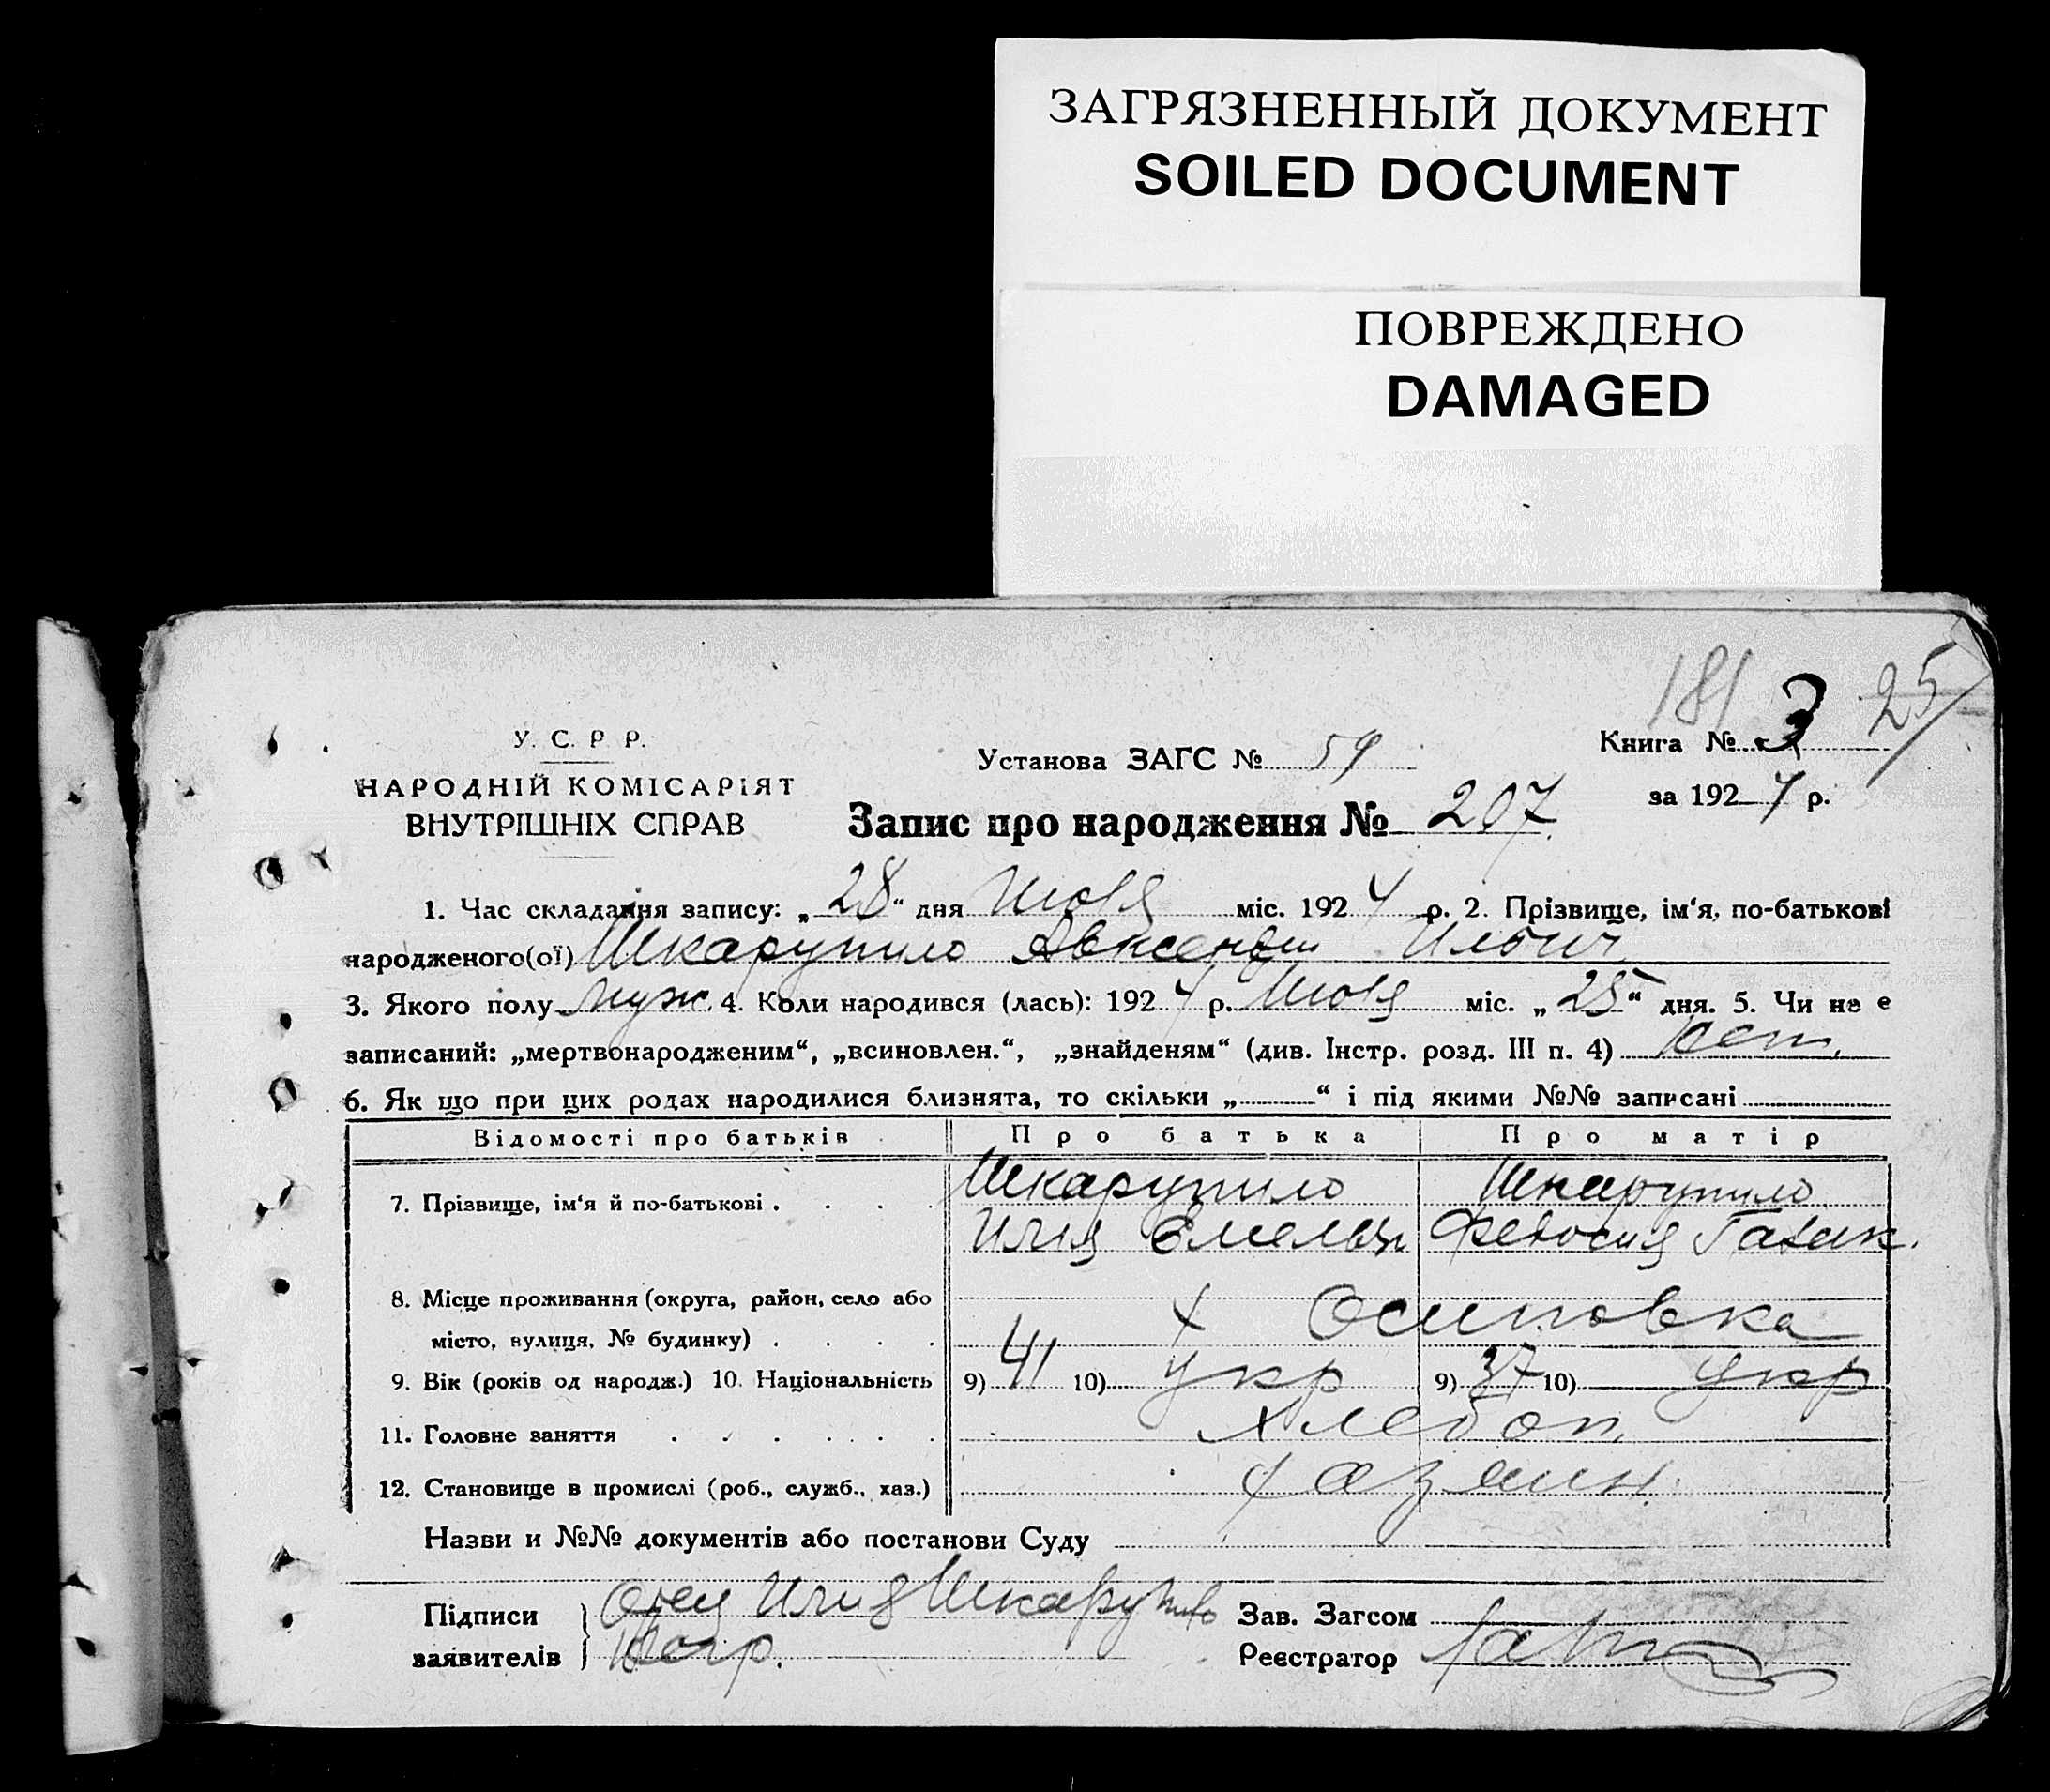 ЗАГРЯЗНЕННЫЙ ДОКУМЕНТ
SOILED DOCUMENT
ПОВРЕЖДЕНО
DAMAGED
181 25
У. С. Р Р.
НАРОДНІЙ КОМІСАРІЯТ
ВНУТРІШНІХ СПРАВ
Установа ЗАГС № 59
Книга № 3
за 1924 р.
Запис про народження № 207
1. Час складання запису: „28“ дня Июля міс. 1924 р. 2. Прізвище, ім‘я, по-батькові
народженого(ої) Шкарупило Авксентий Ильич
3. Якого полу муж. 4. Коли народився (лась): 1924 р. Июля міс. „25“ дня. 5. Чи не є
записаний: „мертвонародженим“, „всиновлен.“, „знайденям“ (див. Інстр. розд. III п. 4)
6. Як що при цих родах народилися близнята, то скільки „ “ і під якими №№ записані
Відомості про батьків Про батька Про матір
7. Прізвище, ім‘я й по-батькові . . . . Шкарупило Шкарупило
Илия Емельян Федосия
8. Місце проживання (округа, район, село або
місто, вулиця, № будинку) . . . . х Осиповка
9. Вік (років од народж.) 10. Національність 9) 41 10) укр 9) 37 10) укр
11. Головне заняття . . . . . . . Хлебоп.
12. Становище в промислі (роб., служб., хаз.) хазяин.
Назви и №№ документів або постанови Суду
Підписи
заявителів
Отец Илия Шкарупило
Зав. Загсом
Реєстратор